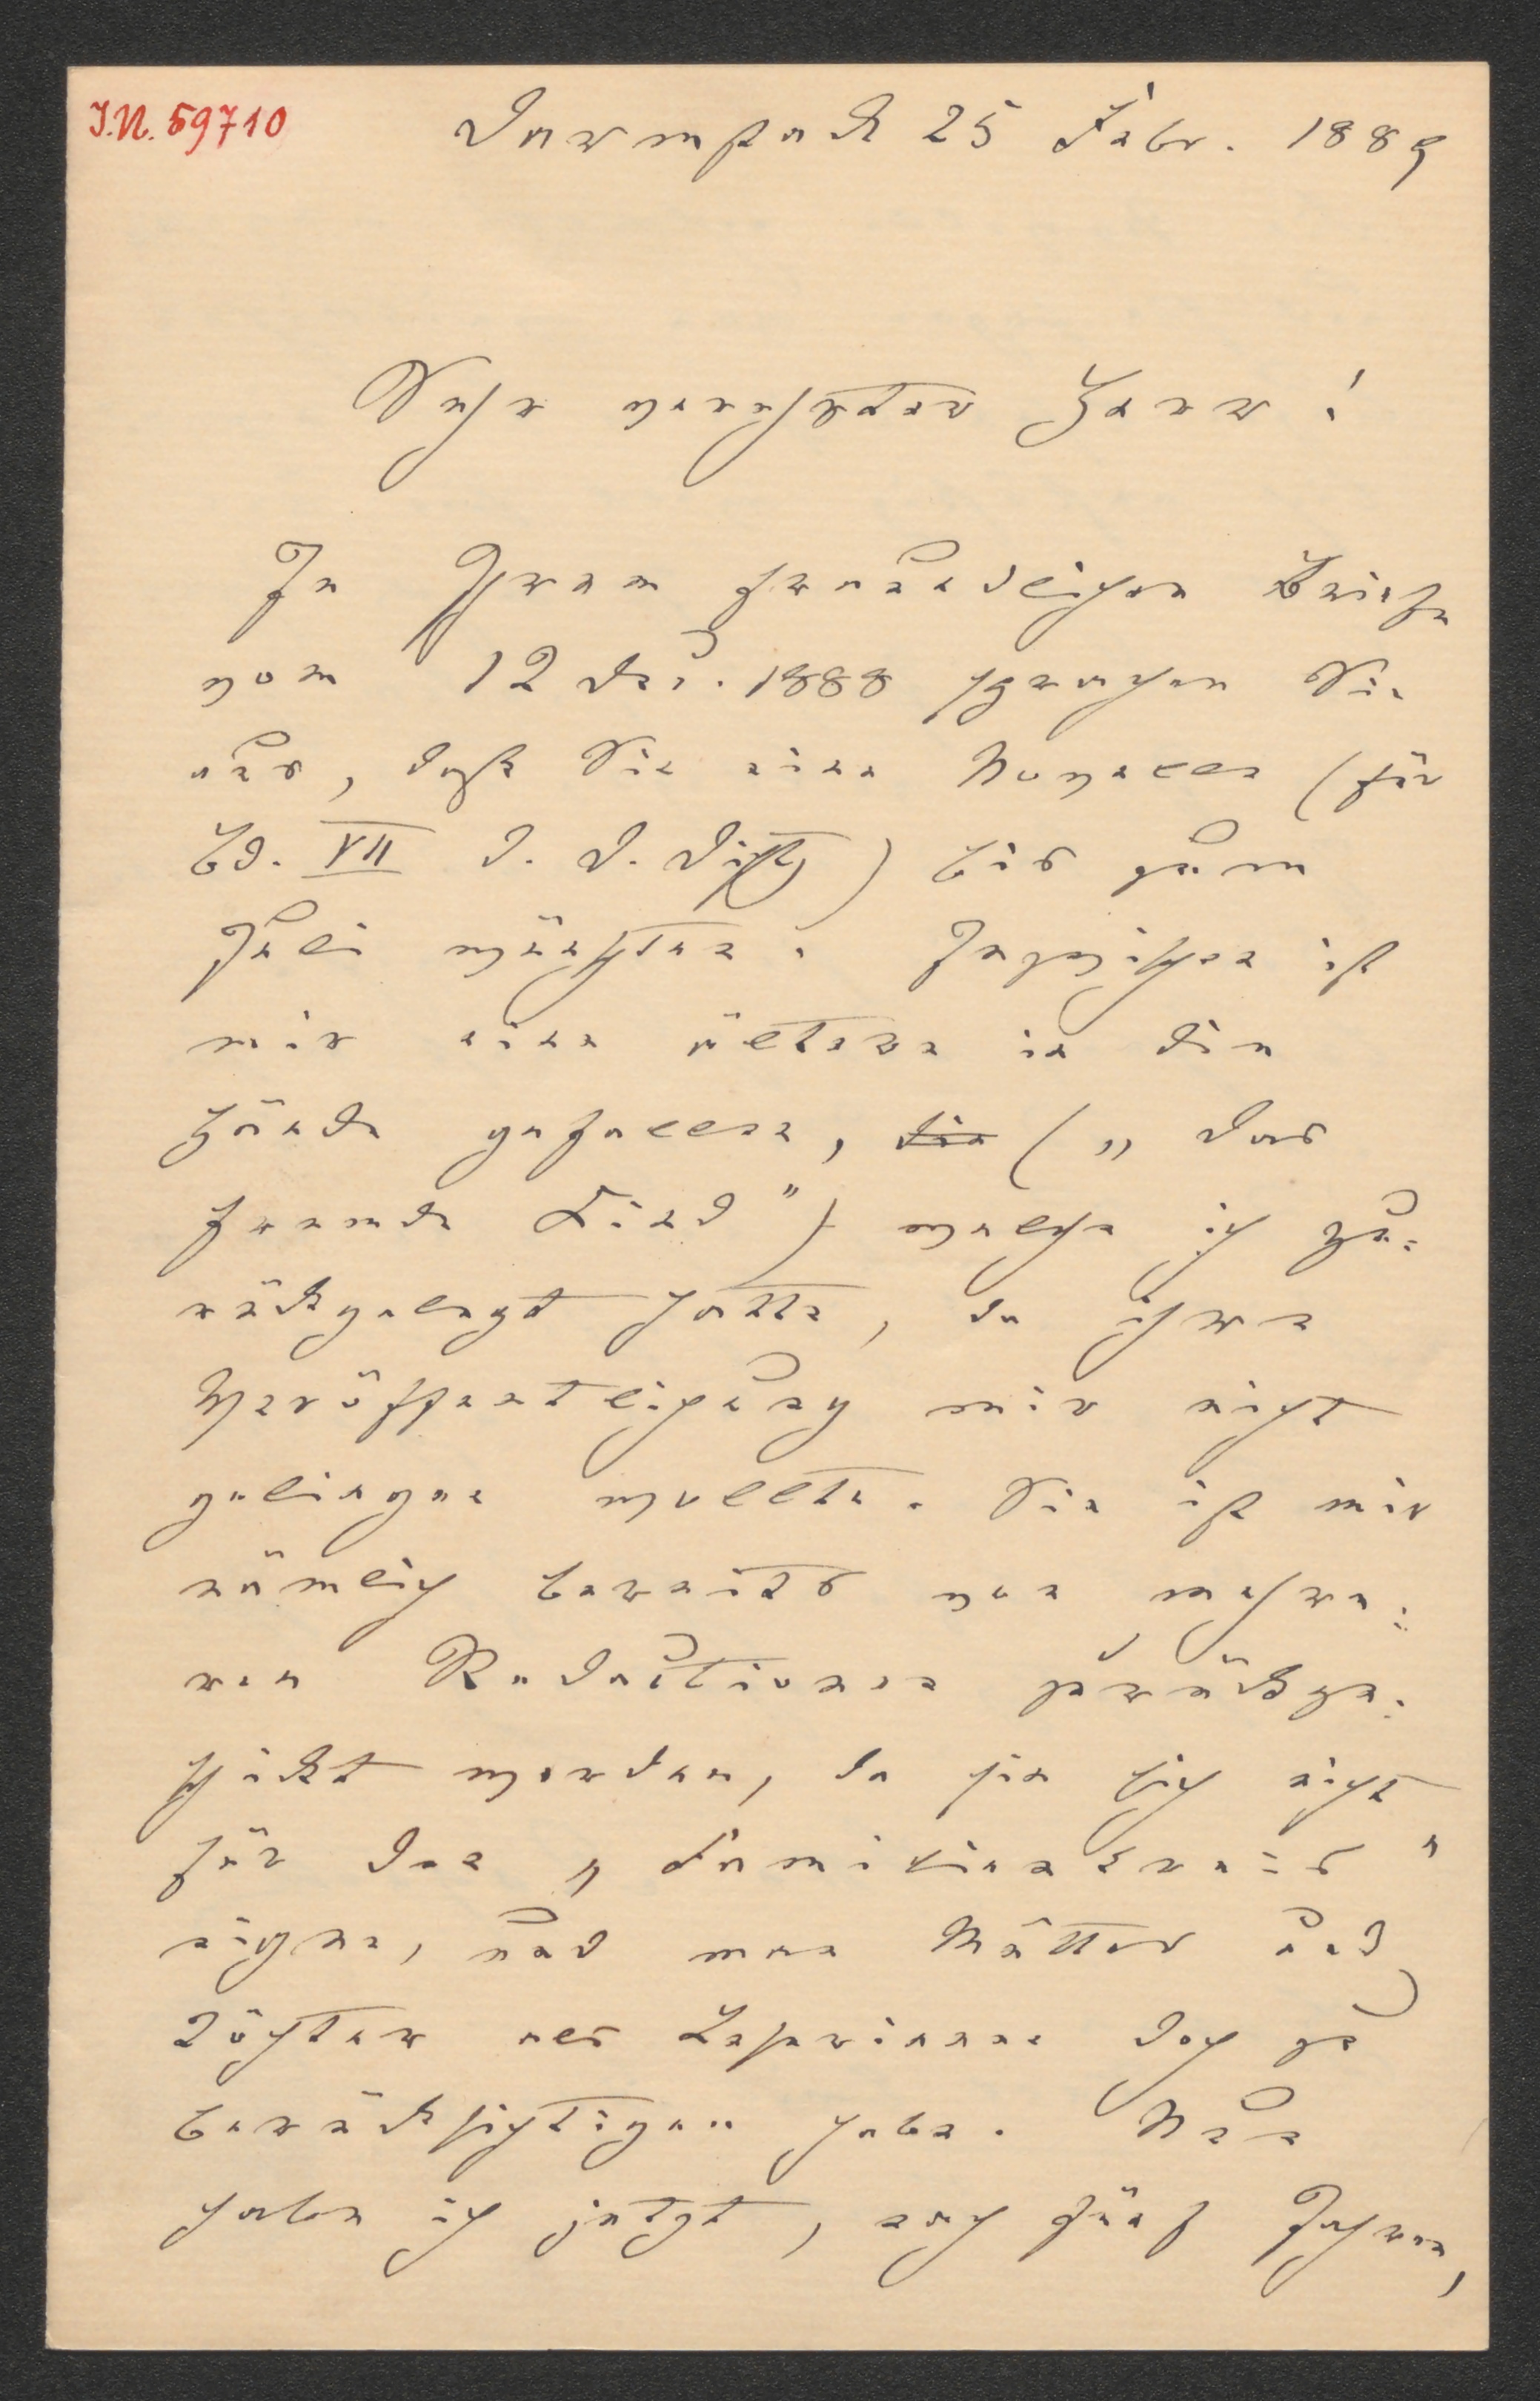 I.N. 59710
Darmstadt 25 Febr. 1889
Sehr verehrter Herr!
In Ihrem freundlichen Briefe
vom 12 Dez. 1888 sprachen Sie
aus, daß Sie eine Novelle (für
Bd. VII d. d. Dichtg) bis zum
Juli möchten. Inzwischen ist
mir eine ältere in die
Hände gefallen, die („Das
fremde Kind") welche ich zu-
rückgelegt hatte, da ihre
Veröffentlichung mir nicht
gelingen wollte. Sie ist mir
nämlich bereits von mehre-
ren Redactionen zurückge-
schickt worden, da sie sich nicht
für den „Familienkreis"
eigne, und man Mütter und
Töchter als Leserinnen doch zu
berücksichtigen habe. Nun
habe ich jetzt, nach fünf Jahren,